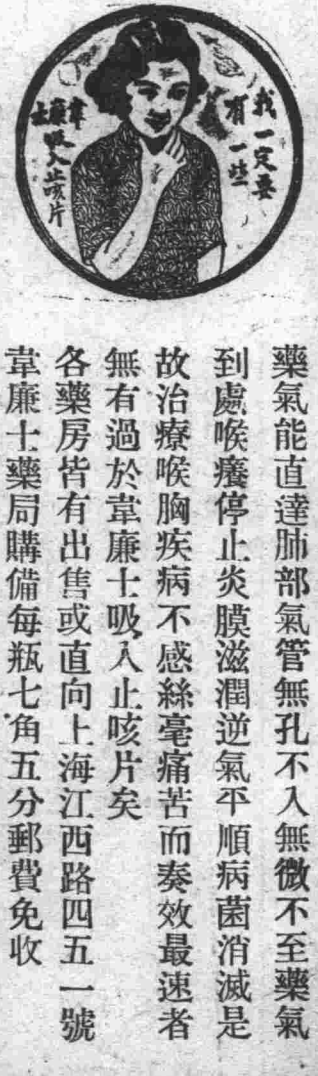 我一定要
有一些
韋
廉
士
吸入止咳片
藥氣能直達肺部氣管無孔不入無微不至藥氣
到處喉癢停止炎膜滋潤逆氣平順病菌消滅是
故治療喉胸疾病不感絲毫痛苦而奏效最速者
無有過於韋廉士吸入止咳片矣
各藥房皆有出售或直向上海江西路四五一號
韋廉士藥局購備每瓶七角五分郵費免收